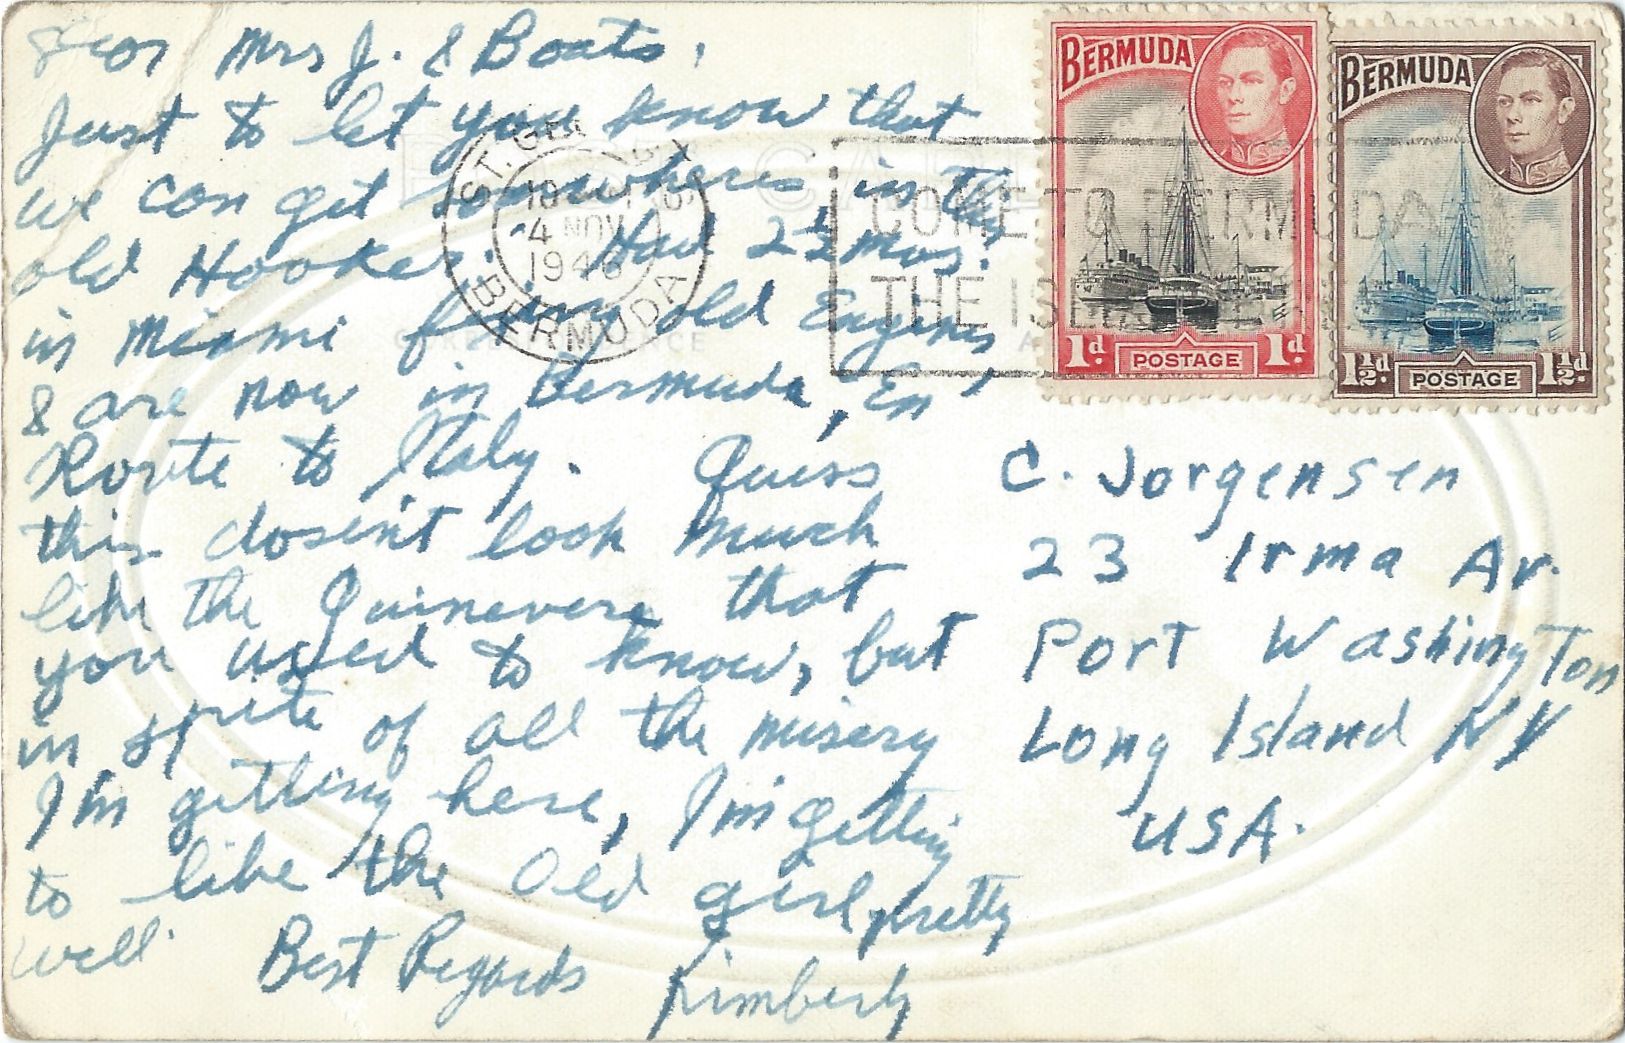 Dear Mrs J. & Boats,
Just to let you know that
we can get somewheres in this
old Hooker. Had 2½ mos.
in Miami fixing old Engines
& are now in Bermuda, "En
Route to Italy. Guess
this dosen't look much
like the Guinevere that
you used to know, but
in sprite of all the misery
I'm gitting here, I'm getting
to like the old girl pretty
well.
Best Regards
Kimberly
C. Jorgensen
23 Irma Av.
Port Washington
Long Island NY
USA.
BERMUDA
1d. POSTAGE 1d.
BERMUDA
1½d. POSTAGE 1½d.
ST. GEORGE'S
4 NOV
1946
BERMUDA
COME TO BERMUDA
THE ISLES